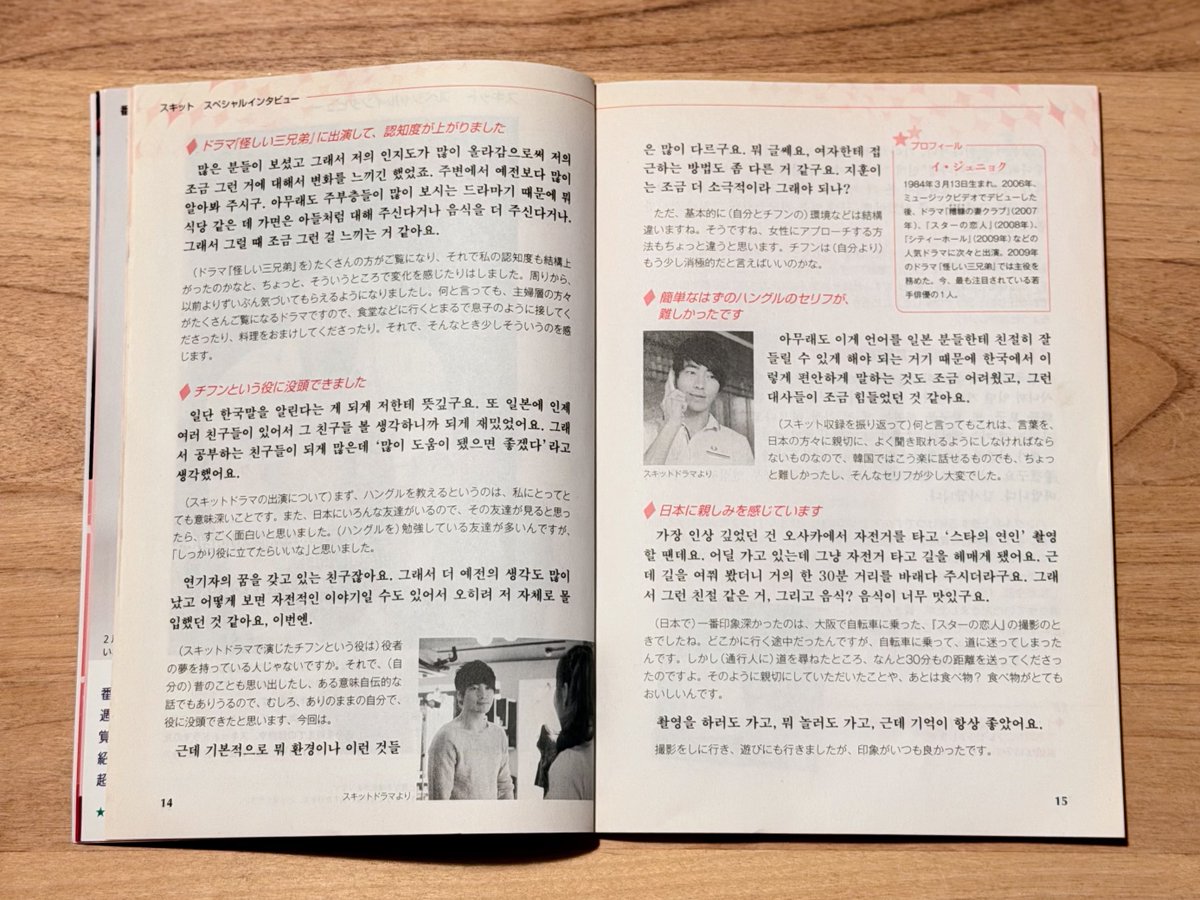 スキット スペシャルインタビュー
ドラマ「怪しい三兄弟」に出演して、認知度が上がりました
많은 분들이 보셨고 그래서 저의 인지도가 많이 올라감으로써 저의
조금 그런 거에 대해서 변화를 느끼긴 했었죠. 주변에서 예전보다 많이
알아봐 주시구. 아무래도 주부층들이 많이 보시는 드라마기 때문에 뭐
식당 같은 데 가면은 아들처럼 대해 주신다거나 음식을 더 주신다거나.
그래서 그럴 때 조금 그런 걸 느끼는 거 같아요.
(ドラマ『怪しい三兄弟』を)たくさんの方がご覧になり、それで私の認知度も結構上
がったのかなと、ちょっと、そういうところで変化を感じたりはしました。周りから、
以前よりずいぶん気づいてもらえるようになりましたし。何と言っても、主婦層の方々
がたくさんご覧になるドラマですので、食堂などに行くとまるで息子のように接してく
ださったり、料理をおまけしてくださったり。それで、そんなとき少しそういうのを感
じます。
チフンという役に没頭できました
일단 한국말을 알린다는 게 되게 저한테 뜻깊구요. 또 일본에 인제
여러 친구들이 있어서 그 친구들 볼 생각하니까 되게 재밌었어요. 그래
서 공부하는 친구들이 되게 많은데 ‘많이 도움이 됐으면 좋겠다’라고
생각했어요.
(スキットドラマの出演について)まず、ハングルを教えるというのは、私にとってと
ても意味深いことです。また、日本にいろんな友達がいるので、その友達が見ると思っ
たら、すごく面白いと思いました。(ハングルを)勉強している友達が多いんですが、
「しっかり役に立てたらいいな」と思いました。
연기자의 꿈을 갖고 있는 친구잖아요. 그래서 더 예전의 생각도 많이
났고 어떻게 보면 자전적인 이야기일 수도 있어서 오히려 저 자체로 몰
입했던 것 같아요, 이번엔.
(スキットドラマで演じたチフンという役は)役者
の夢を持っている人じゃないですか。それで、(自
分の)昔のことも思い出したし、ある意味自伝的な
話でもありうるので、むしろ、ありのままの自分で、
役に没頭できたと思います、今回は。
근데 기본적으로 뭐 환경이나 이런 것들
スキットドラマより
14
은 많이 다르구요. 뭐 글쎄요, 여자한테 접
근하는 방법도 좀 다른 거 같구요. 지훈이
는 조금 더 소극적이라 그래야 되나?
ただ、基本的に(自分とチフンの)環境などは結構
違いますね。そうですね、女性にアプローチする方
法もちょっと違うと思います。チフンは(自分より)
もう少し消極的だと言えばいいのかな。
プロフィール
イ・ジェニョク
1984年3月13日生まれ。2006年、
ミュージックビデオでデビューした
後、ドラマ『糟糠の妻クラブ』(2007
年)、『スターの恋人』(2008年)、
『シティーホール』(2009年)などの
人気ドラマに次々と出演。2009年
のドラマ『怪しい三兄弟』では主役を
務めた。今、最も注目されている若
手俳優の1人。
簡単なはずのハングルのセリフが、
難しかったです
아무래도 이게 언어를 일본 분들한테 친절히 잘
들릴 수 있게 해야 되는 거기 때문에 한국에서 이
렇게 편안하게 말하는 것도 조금 어려웠고, 그런
대사들이 조금 힘들었던 것 같아요.
(スキット収録を振り返って)何と言ってもこれは、言葉を、
日本の方々に親切に、よく聞き取れるようにしなければなら
ないものなので、韓国ではこう楽に話せるものでも、ちょっ
と難しかったし、そんなセリフが少し大変でした。
スキットドラマより
日本に親しみを感じています
가장 인상 깊었던 건 오사카에서 자전거를 타고 ‘스타의 연인’ 촬영
할 땐데요. 어딜 가고 있는데 그냥 자전거 타고 길을 헤매게 됐어요. 근
데 길을 여쭤 봤더니 거의 한 30분 거리를 바래다 주시더라구요. 그래
서 그런 친절 같은 거, 그리고 음식? 음식이 너무 맛있구요.
(日本で)一番印象深かったのは、大阪で自転車に乗った、『スターの恋人』の撮影のと
きでしたね。どこかに行く途中だったんですが、自転車に乗って、道に迷ってしまった
んです。しかし(通行人に)道を尋ねたところ、なんと30分もの距離を送ってくださっ
たのですよ。そのように親切にしていただいたことや、あとは食べ物? 食べ物がとても
おいしいんです。
촬영을 하러도 가고, 뭐 놀러도 가고, 근데 기억이 항상 좋았어요.
撮影をしに行き、遊びにも行きましたが、印象がいつも良かったです。
15